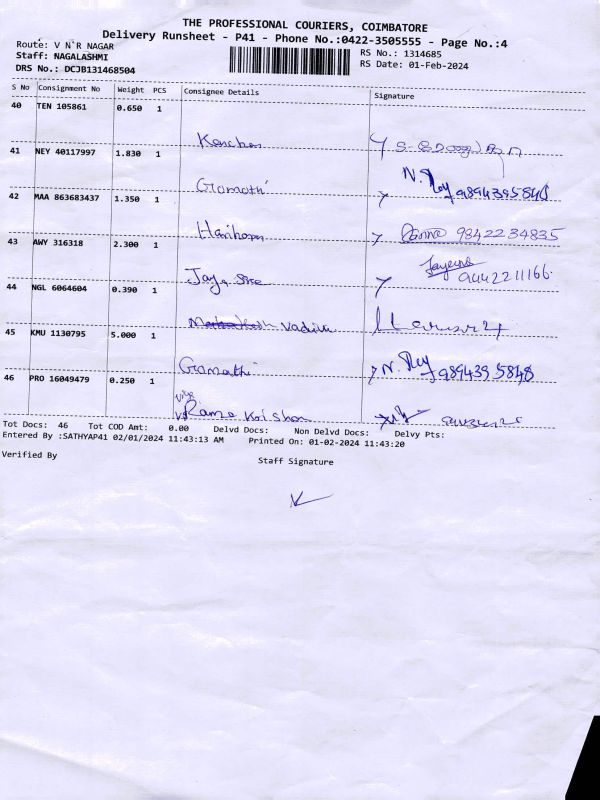 THE PROFESSIONAL COURIERS, COIMBATORE
Delivery Runsheet - P41 - Phone No.:0422-3505555 - Page No.:4
Route: V N R NAGAR
RS No.: 1314685
Staff: NAGALASHMI
RS Date: 01-Feb-2024
DRS No.: DCJB131468504
S No Consignment No Weight PCS Consignee Details Signature
40 TEN 105861 0.650 1
Kanchan
41 NEY 40117997 1.830 1
Gomathi N. Roy 9894395848
42 MAA 863683437 1.350 1
Hariharan 9842234835
43 AWY 316318 2.300 1
Jaya Sree 9442211166
44 NGL 6064604 0.390 1
Vadivu
45 KMU 1130795 5.000 1
Gomathi N. Roy 9894395848
46 PRO 16049479 0.250 1
Rama Krishnan
Tot Docs: 46 Tot COD Amt: 0.00 Delvd Docs: Non Delvd Docs: Delvy Pts:
Entered By :SATHYAP41 02/01/2024 11:43:13 AM Printed On: 01-02-2024 11:43:20
Verified By
Staff Signature